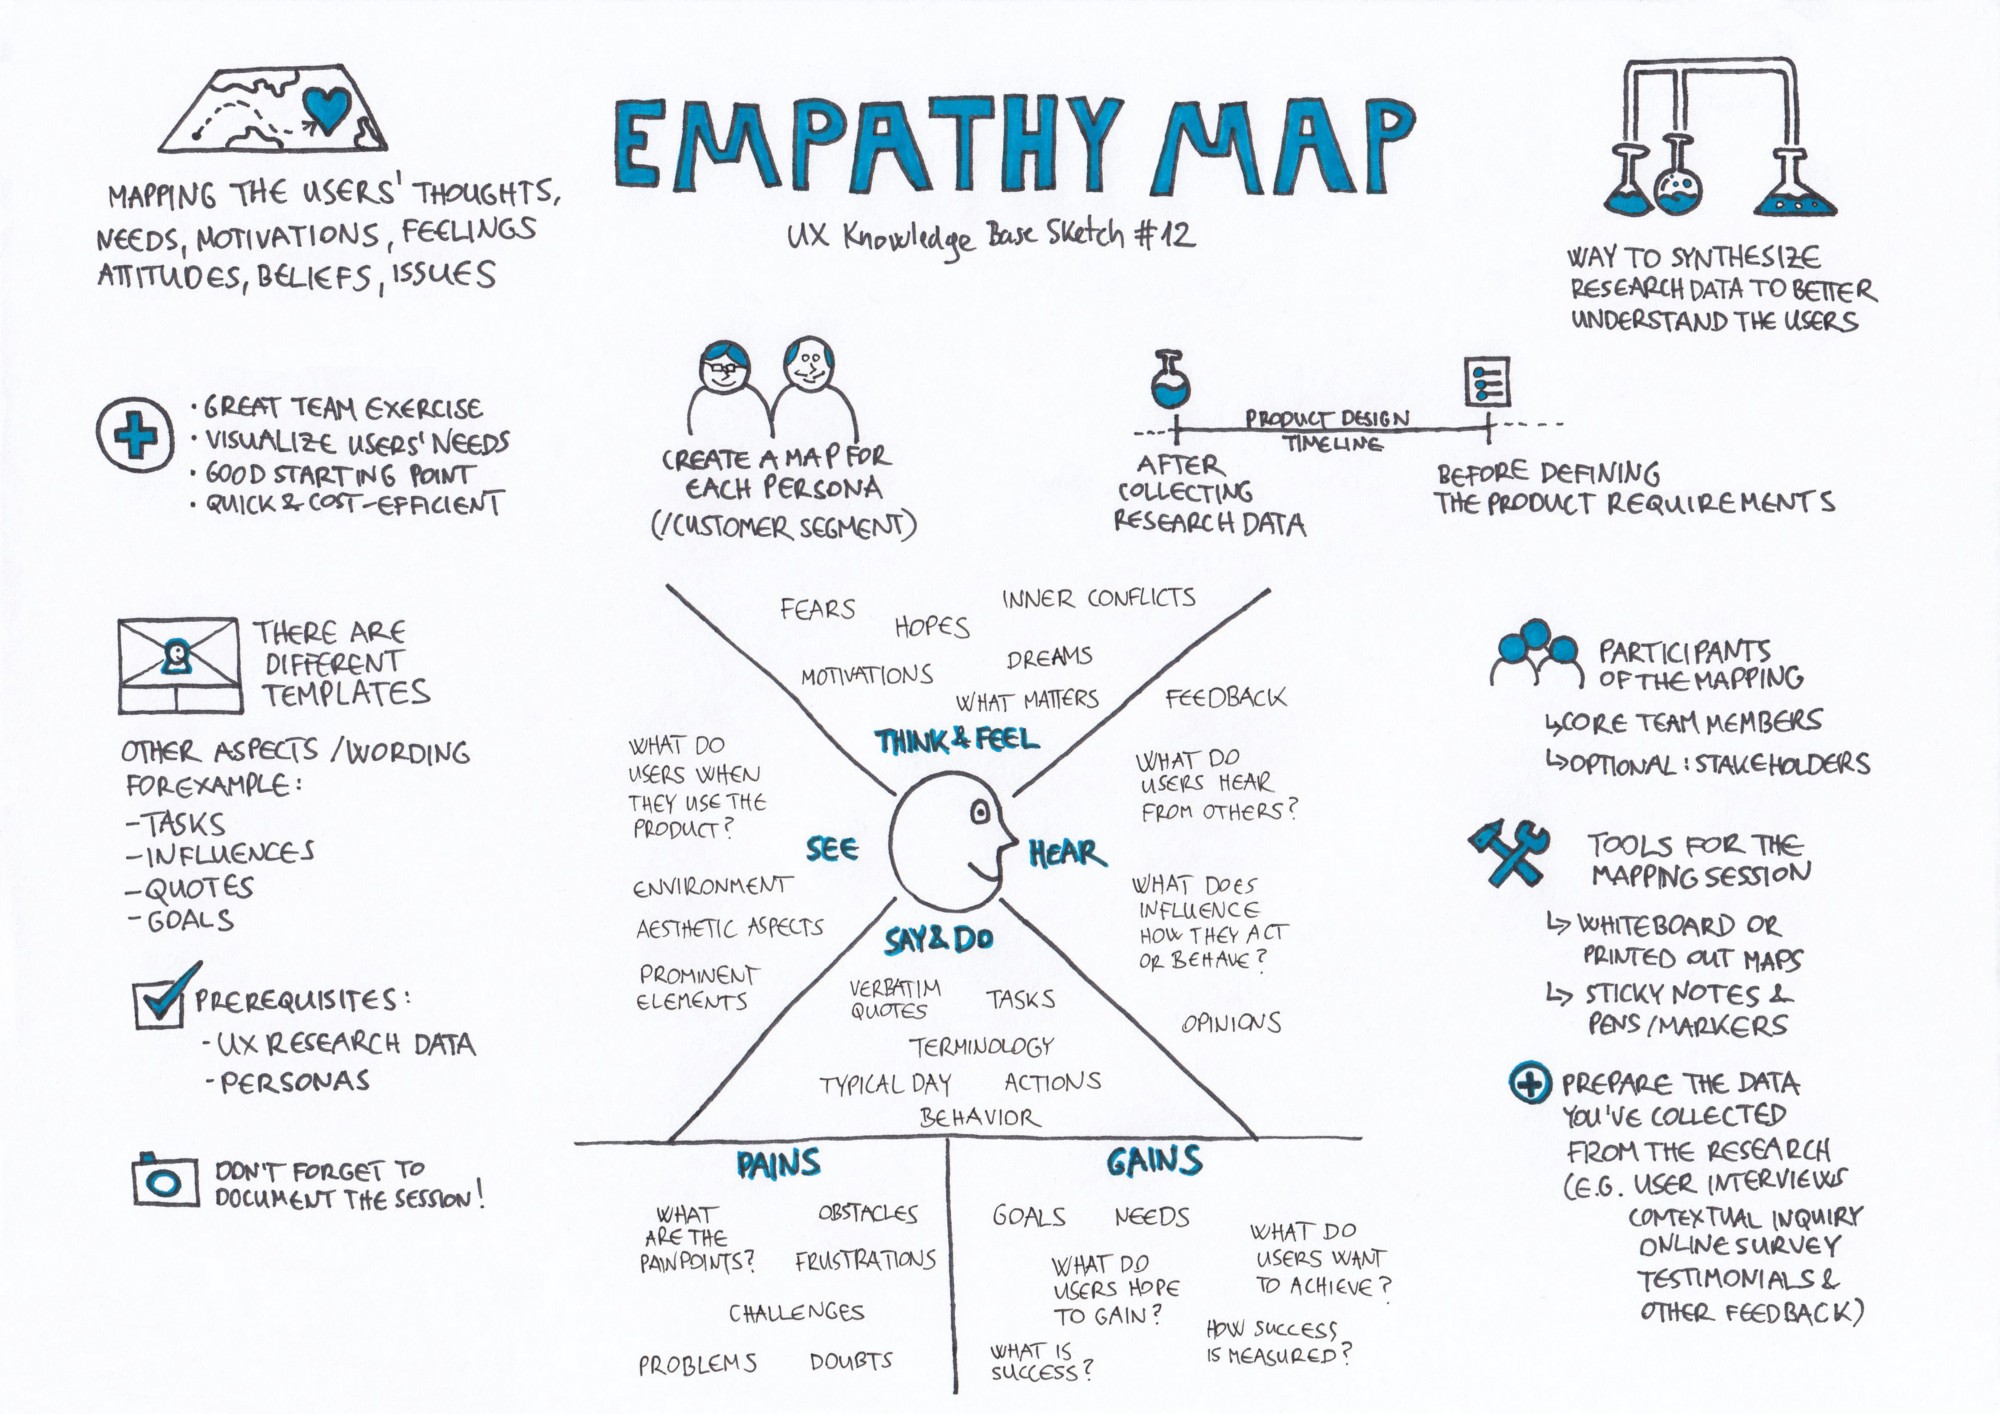 EMPATHY MAP
UX Knowledge Base Sketch #12
MAPPING THE USERS' THOUGHTS,
NEEDS, MOTIVATIONS, FEELINGS
ATTITUDES, BELIEFS, ISSUES
WAY TO SYNTHESIZE
RESEARCH DATA TO BETTER
UNDERSTAND THE USERS
• GREAT TEAM EXERCISE
• VISUALIZE USERS' NEEDS
• GOOD STARTING POINT
• QUICK & COST-EFFICIENT
CREATE A MAP FOR
EACH PERSONA
(/CUSTOMER SEGMENT)
PRODUCT DESIGN
TIMELINE
AFTER
COLLECTING
RESEARCH DATA
BEFORE DEFINING
THE PRODUCT REQUIREMENTS
THERE ARE
DIFFERENT
TEMPLATES
OTHER ASPECTS /WORDING
FOR EXAMPLE:
-TASKS
-INFLUENCES
-QUOTES
-GOALS
PREREQUISITES:
-UX RESEARCH DATA
-PERSONAS
DON'T FORGET TO
DOCUMENT THE SESSION!
FEARS
HOPES
INNER CONFLICTS
MOTIVATIONS
DREAMS
WHAT MATTERS
THINK & FEEL
WHAT DO
USERS WHEN
THEY USE THE
PRODUCT?
SEE
ENVIRONMENT
AESTHETIC ASPECTS
PROMINENT
ELEMENTS
FEEDBACK
WHAT DO
USERS HEAR
FROM OTHERS?
HEAR
WHAT DOES
INFLUENCE
HOW THEY ACT
OR BEHAVE?
OPINIONS
SAY & DO
VERBATIM
QUOTES
TASKS
TERMINOLOGY
TYPICAL DAY
ACTIONS
BEHAVIOR
PAINS
WHAT
ARE THE
PAINPOINTS?
OBSTACLES
FRUSTRATIONS
CHALLENGES
PROBLEMS
DOUBTS
GAINS
GOALS
NEEDS
WHAT DO
USERS WANT
TO ACHIEVE?
WHAT DO
USERS HOPE
TO GAIN?
HOW SUCCESS
IS MEASURED?
WHAT IS
SUCCESS?
PARTICIPANTS
OF THE MAPPING
↳CORE TEAM MEMBERS
↳OPTIONAL: STAKEHOLDERS
TOOLS FOR THE
MAPPING SESSION
↳ WHITEBOARD OR
PRINTED OUT MAPS
↳ STICKY NOTES &
PENS/MARKERS
PREPARE THE DATA
YOU'VE COLLECTED
FROM THE RESEARCH
(E.G. USER INTERVIEWS
CONTEXTUAL INQUIRY
ONLINE SURVEY
TESTIMONIALS &
OTHER FEEDBACK)